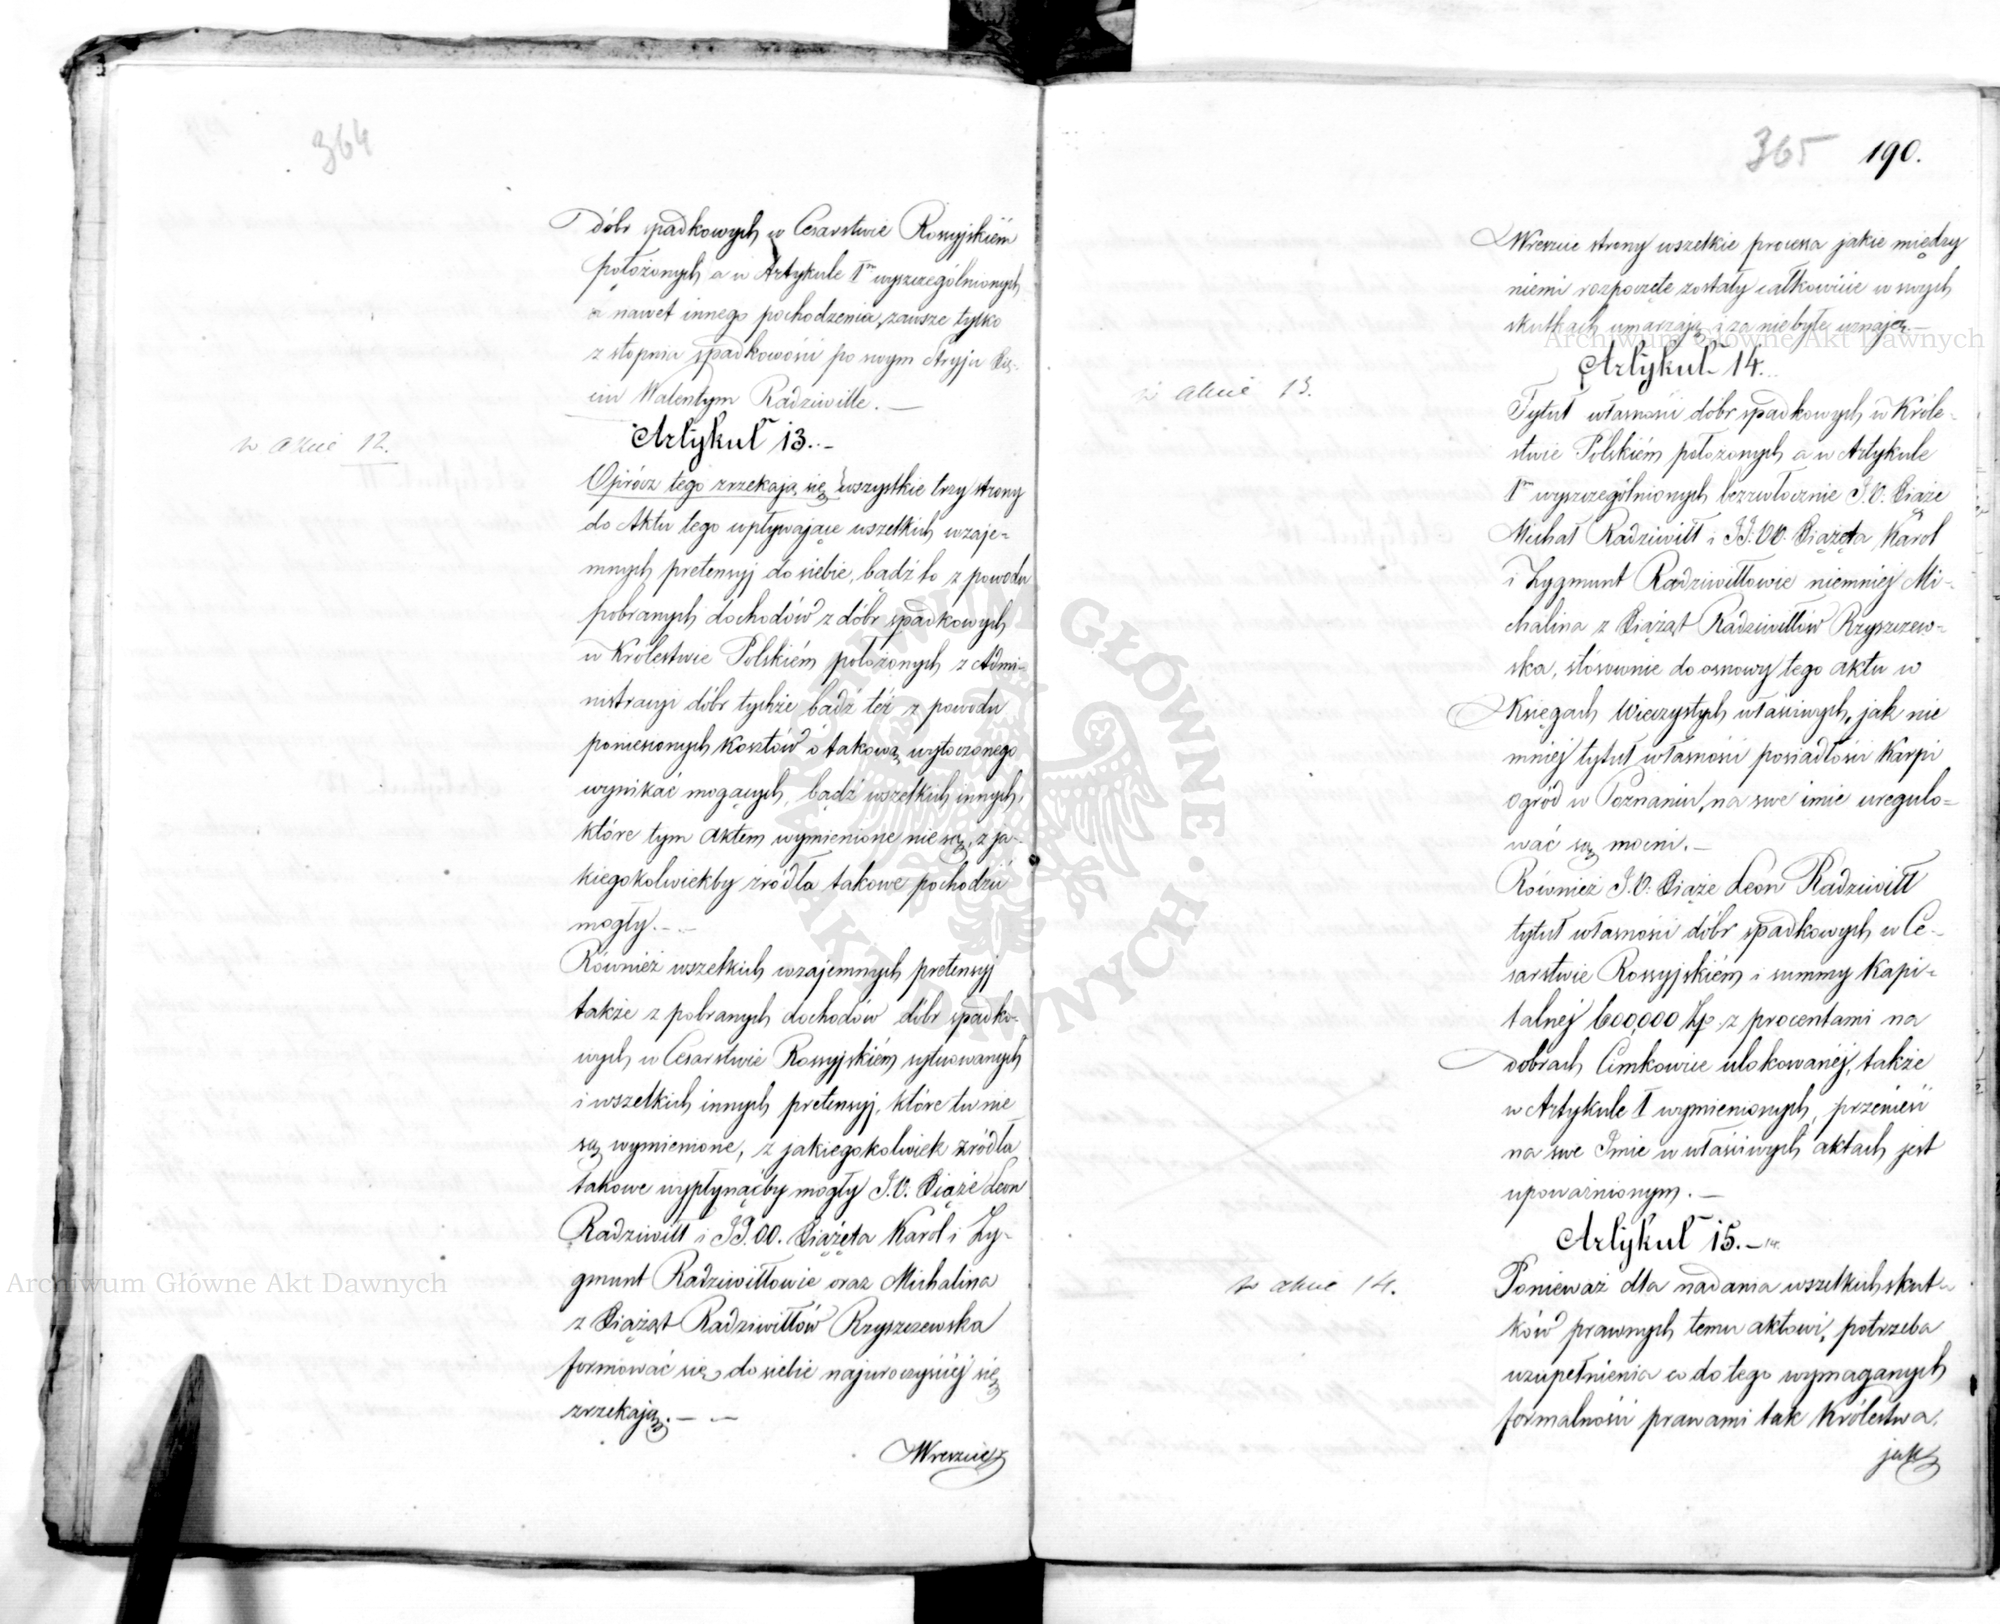 364
dóbr spadkowych w Cesarstwie Rossyjskiém
położonych a w Artykule Im wyszczególnionych
a nawet innego pochodzenia, zawsze tylko
z stopnia spadkowości po swym Stryju Xię-
ciu Walentym Radziwille. —
w akcie 12.
Artykuł 13. —
Oprócz tego zrzekają się wszystkie trzy strony
do Aktu tego wpływające wszelkich wzaje-
mnych pretensyj do siebie, bądź to z powodu
pobranych dochodów z dóbr spadkowych
w Królestwie Polskiém położonych z Admi-
nistracyi dóbr tychże bądź też z powodu
poniesionych kosztów o takową wytoczonego
wynikać mogących, bądź wszelkich innych,
które tym aktem wymienione nie są, z ja-
kiegokolwiekby źródła takowe pochodzić
mogły. — —
Również wszelkich wzajemnych pretensyj
także z pobranych dochodów dóbr spadko-
wych w Cesarstwie Rossyjskiém sytuowanych
i wszelkich innych pretensyj, które tu nie
są wymienione, z jakiegokolwiek źródła
takowe wypłynąćby mogły J.O. Xiąże Leon
Radziwiłł i JJ.OO. Xiążęta Karol i Zy-
gmunt Radziwiłłowie oraz Michalina
z Xiążąt Radziwiłłów Rzyszczewska
formować się do siebie najuroczyściéj się
zrzekają. — —
Wreszcie
365 190.
Wreszcie strony wszelkie processa jakie między
niemi rozpoczęte zostały całkowicie w swych
skutkach umarzają a za niebyłe uznają. —
w akcie 13.
Artykuł 14.
Tytuł własności dóbr spadkowych w Króle-
stwie Polskiém położonych a w Artykule
Im wyszczególnionych bezzwłocznie J.O. Xiąże
Michał Radziwiłł i JJ.OO. Xiążęta Karol
i Zygmunt Radziwiłłowie niemniej Mi-
chalina z Xiążąt Radziwiłłów Rzyszczew-
ska, stósownie do osnowy tego aktu w
Księgach Wieczystych właściwych, jak nie
mniej tytuł własności posiadłości Karpi
ogród w Poznaniu, na swe imie uregulo-
wać są mocni. —
Również J.O. Xiąże Leon Radziwiłł
tytuł własności dóbr spadkowych w Ce-
sarstwie Rossyjskiém i summy Kapi-
talnéj 600,000 Zp. z procentami na
dobrach Cimkowice ulokowanéj, także
w Artykule I wymienionych, przenieść
na swe Imie w właściwych aktach jest
upoważnionym. —
w akcie 14.
Artykuł 15. — 14.
Ponieważ dla nadania wszelkich skut-
ków prawnych temu aktowi, potrzeba
uzupełnienia co do tego wymaganych
formalności prawami tak Królestwa
jak
Archiwum Główne Akt Dawnych
Archiwum Główne Akt Dawnych
ARCHIWUM GŁÓWNE • AKT DAWNYCH •